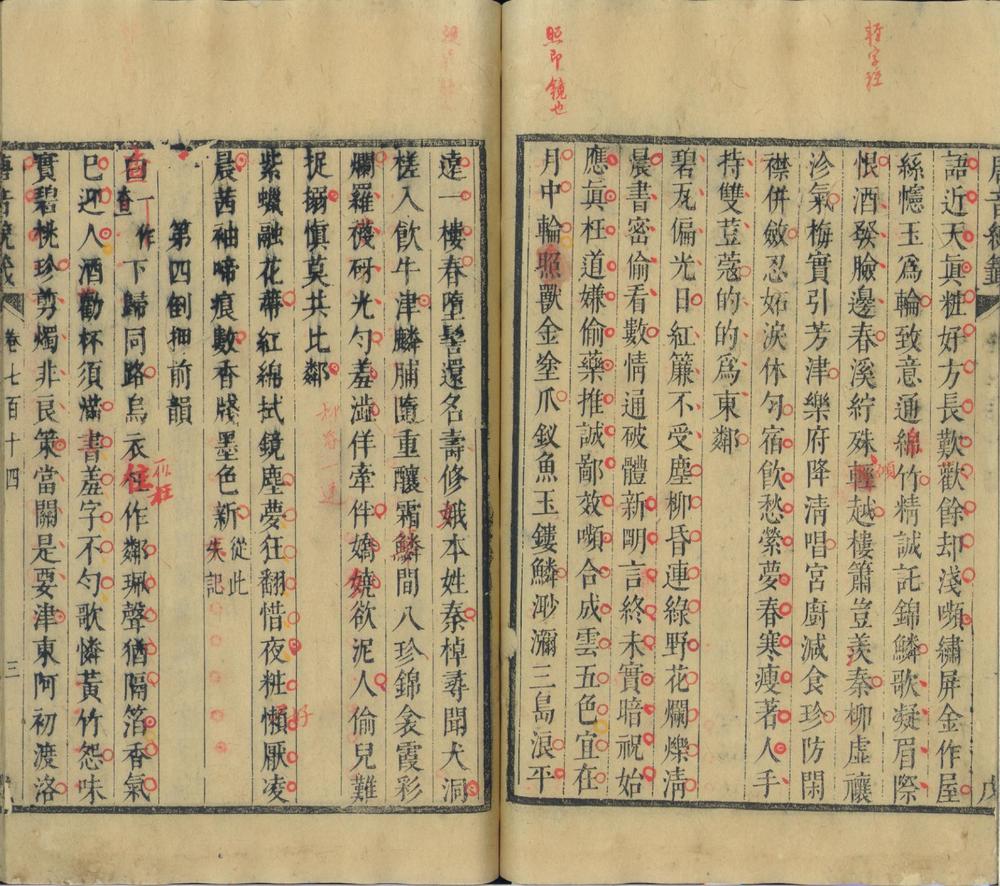 照即鏡也
語近天眞粧好方長歎歡餘却淺嚬繡屏金作屋
絲幰玉爲輪致意通綿竹精誠託錦鱗歌凝眉際
恨酒發臉邊春溪紵殊輕越樓簫豈羨秦柳虛禳
沴氣梅實引芳津樂府降清唱宮廚減食珍防閑
襟併斂忍妬淚休勻宿飲愁縈夢春寒瘦著人手
持雙荳蔲的的爲東鄰
碧瓦偏光日紅簾不受塵柳昏連綠野花爛爍清
晨書密偷看數情通破體新明言終未實暗祝始
應眞枉道嫌偷藥推誠鄙效嚬合成雲五色宜在
月中輪照獸金塗爪釵魚玉鏤鱗渺瀰三島浪平
遠一樓春墮髻還名壽修娥本姓秦棹尋聞犬洞
槎入飲牛津麟脯隨重釀霜鱗間八珍錦衾霞彩
爛羅襪砑光勻羞澁佯牽伴嬌嬈欲泥人偷兒難
捉搦慎莫共比鄰
紫蠟融花蔕紅綿拭鏡塵夢狂翻惜夜粧懶厭凌
晨茜袖啼痕數香牋墨色新從此失記
第四倒押前韻
白一作查下歸同路烏衣枉作鄰珮聲猶隔箔香氣
已迎人酒勸杯須滿書羞字不勻歌憐黃竹怨味
實碧桃珍剪燭非良策當關是要津東阿初渡洛
卷七百十四
三